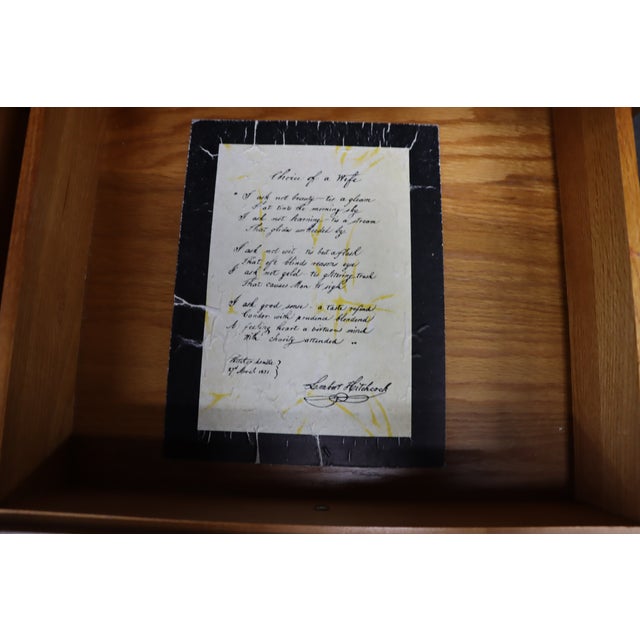 Choice of a Wife
" I ask not beauty - tis a gleam
That tints the morning sky
I ask not learning - tis a stream
That glides unheeded by.
I ask not wit - tis but a flash
That oft blinds reasons eye
I ask not gold - tis glittering trash
That causes Man to sigh
I ask good sense - a taste refind
Candor with prudence blendend
A feeling heart a virtuous mind
With charity attended "
April 1851
Lambert Hitchcock